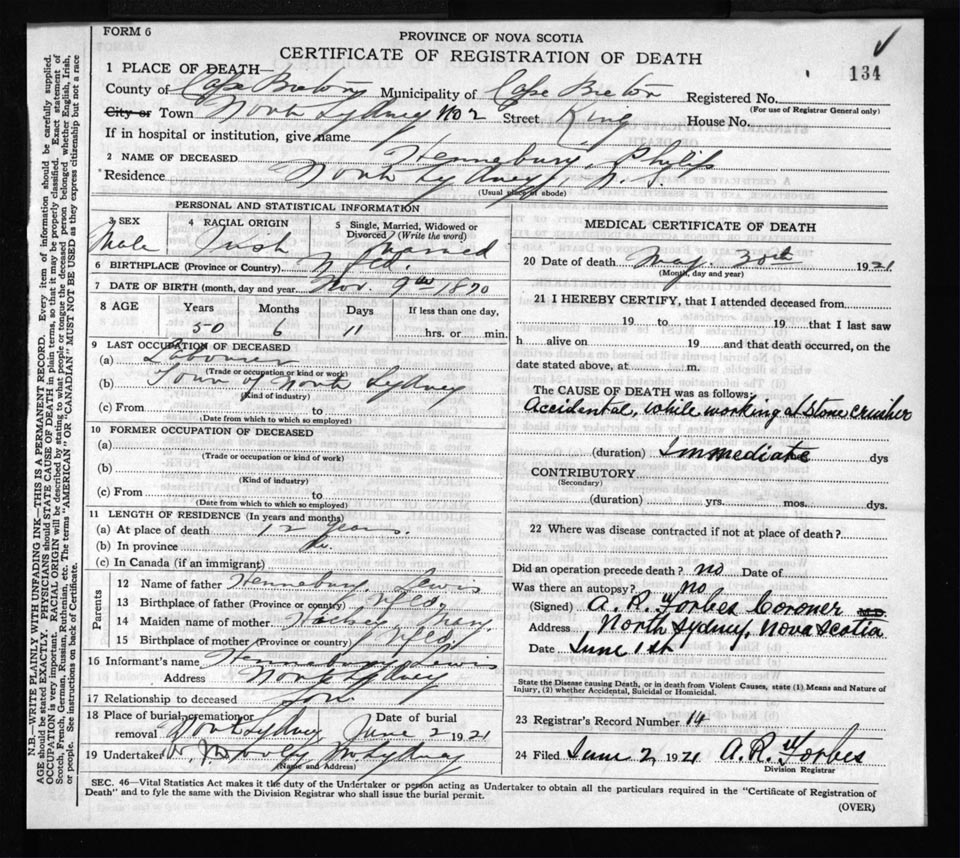 FORM 6
PROVINCE OF NOVA SCOTIA
CERTIFICATE OF REGISTRATION OF DEATH
134
1 PLACE OF DEATH—
County of Cape Breton Municipality of Cape Breton Registered No.
(For use of Registrar General only)
City or Town North Sydney No 2 Street King House No.
If in hospital or institution, give name
2 NAME OF DECEASED Hennebury, Philip
Residence North Sydney, N. S.
(Usual place of abode)
PERSONAL AND STATISTICAL INFORMATION
3 SEX 4 RACIAL ORIGIN 5 Single, Married, Widowed or Divorced? (Write the word)
Male Irish Married
6 BIRTHPLACE (Province or Country) Nfld.
7 DATE OF BIRTH (month, day and year) Nov. 9th 1870
8 AGE Years Months Days If less than one day,
50 6 11 hrs. or min.
9 LAST OCCUPATION OF DECEASED
(a) Labourer
(Trade or occupation or kind of work)
(b) Town of North Sydney
(Kind of industry)
(c) From to
(Date from which to which so employed)
10 FORMER OCCUPATION OF DECEASED
(a)
(Trade or occupation or kind of work)
(b)
(Kind of industry)
(c) From to
(Date from which to which so employed)
11 LENGTH OF RESIDENCE (In years and months)
(a) At place of death 12 years.
(b) In province do.
(c) In Canada (if an immigrant)
Parents
12 Name of father Hennebury, Lewis
13 Birthplace of father (Province or country) Nfld.
14 Maiden name of mother Mary
15 Birthplace of mother (Province or country) Nfld.
16 Informant's name Hennebury, Lewis
Address North Sydney
17 Relationship to deceased Son
18 Place of burial, cremation or removal North Sydney Date of burial June 2 1921
19 Undertaker N. Sydney
(Name and Address)
MEDICAL CERTIFICATE OF DEATH
20 Date of death May 30th 1921
(Month, day and year)
21 I HEREBY CERTIFY, that I attended deceased from
19 to 19 that I last saw
h alive on 19 and that death occurred, on the
date stated above, at m.
The CAUSE OF DEATH was as follows:
Accidental, while working at stone crusher
(duration) Immediate dys
CONTRIBUTORY
(Secondary)
(duration) yrs. mos. dys.
22 Where was disease contracted if not at place of death?
Did an operation precede death? no Date of
Was there an autopsy? no
(Signed) A. R. Forbes Coroner M.D.
Address North Sydney, Nova Scotia
Date June 1st
State the Disease causing Death, or in death from Violent Causes, state (1) Means and Nature of
Injury, (2) whether Accidental, Suicidal or Homicidal.
23 Registrar's Record Number 14
24 Filed June 2, 1921 A. R. Forbes
Division Registrar
SEC. 46—Vital Statistics Act makes it the duty of the Undertaker or person acting as Undertaker to obtain all the particulars required in the "Certificate of Registration of
Death" and to fyle the same with the Division Registrar who shall issue the burial permit.
(OVER)
N.B.—WRITE PLAINLY WITH UNFADING INK—THIS IS A PERMANENT RECORD. Every item of information should be carefully supplied.
AGE should be stated EXACTLY. PHYSICIANS should STATE CAUSE OF DEATH in plain terms, so that it may be properly classified. Exact statement of
OCCUPATION is very important. RACIAL ORIGIN will be described by stating to what people or tongue the deceased person belonged whether English, Irish,
Scotch, French, German, Russian, Ruthenian, etc. The terms "AMERICAN" OR "CANADIAN" MUST NOT BE USED as they express citizenship but not a race
or people. See instructions on back of Certificate.